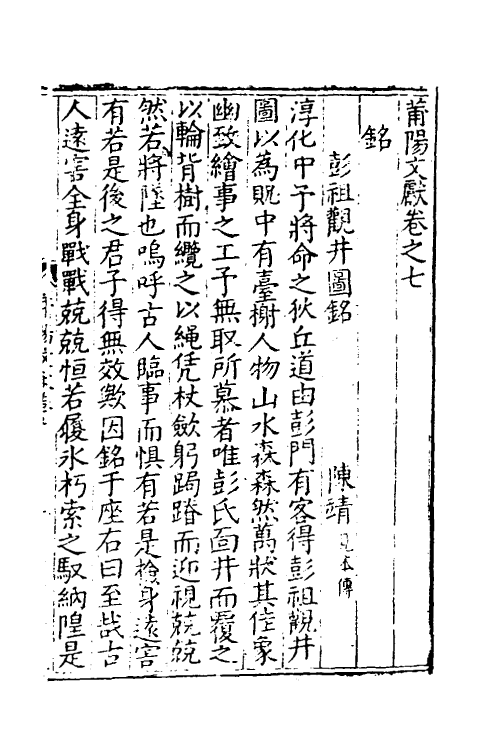 莆陽文獻卷之七
銘
彭祖觀井圖銘 陳靖 見本傳
淳化中予將命之狄丘道由彭門有客得彭祖觀井
圖以為貺中有臺榭人物山水森森然萬狀其佳象
幽致繪事之工予無取所慕者唯彭氏面井而覆之
以輪背樹而纜之以繩凭杖歛躬跼蹐而迎視兢兢
然若將墜也嗚呼古人臨事而懼有若是撿身遠害
有若是後之君子得無效歟因銘于座右曰至哉古
人遠害全身戰戰兢兢恒若履氷朽索之馭納隍是